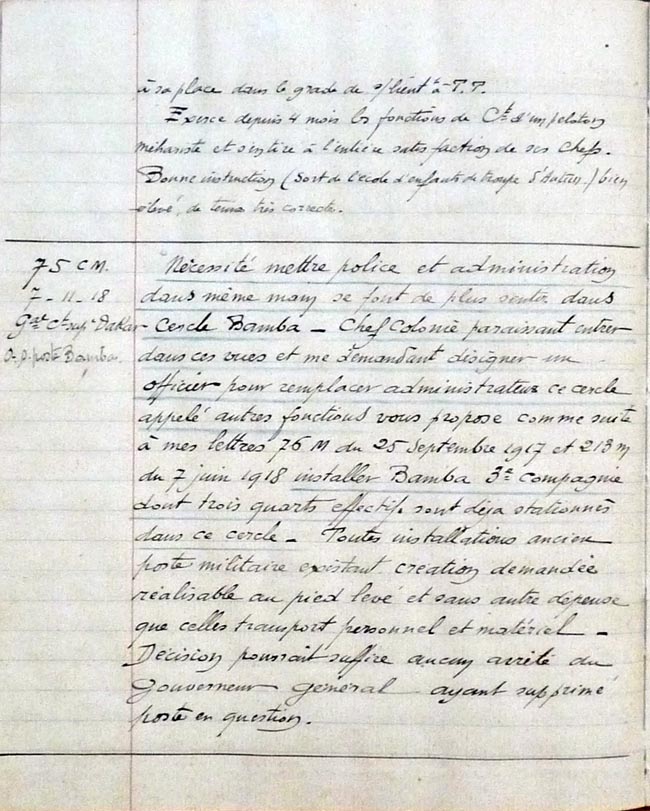 à sa place dans le grade de s/lieut à T.T.
Exerce depuis 4 mois les fonctions de Ct d'un peloton
méhariste et s'en tire à l'entière satisfaction de ses chefs.
Bonne instruction (sort de l'école d'enfants de troupe d'Autun.) bien
élevé, de tenue très correcte.
75 CM.
7-11-18
Gal Ct supr Dakar
a.s. poste Bamba.
Nécessité mettre police et administration
dans même main se fait de plus sentir dans
Cercle Bamba _ Chef Colonie paraissant entrer
dans ces vues et me demandant désigner un
officier pour remplacer administrateur ce cercle
appelé autres fonctions vous propose comme suite
à mes lettres 76 M du 25 Septembre 1917 et 213 M
du 7 juin 1918 installer Bamba 3e Compagnie
dont trois quarts effectifs sont déjà stationnés
dans ce cercle _ Toutes installations ancien
poste militaire existant création demandée
réalisable au pied levé et sans autre dépense
que celles transport personnel et matériel _
Décision pourrait suffire aucun arrêté du
Gouverneur général ayant supprimé
poste en question.